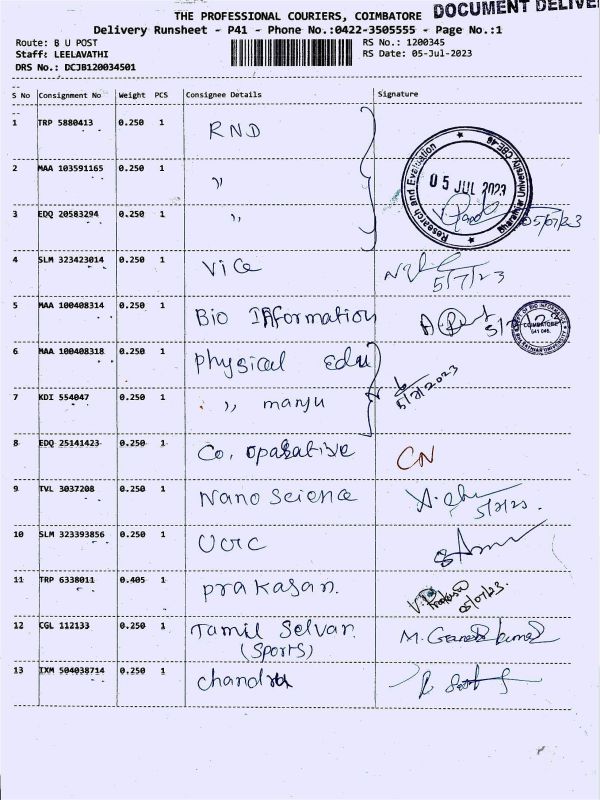 THE PROFESSIONAL COURIERS, COIMBATORE DOCUMENT DELIVE
Delivery Runsheet - P41 - Phone No.:0422-3505555 - Page No.:1
Route: B U POST RS No.: 1200345
Staff: LEELAVATHI RS Date: 05-Jul-2023
DRS No.: DCJB120034501
S No Consignment No Weight PCS Consignee Details Signature
1 TRP 5880413 0.250 1 RND
2 MAA 103591165 0.250 1 〃
3 EDQ 20583294 0.250 1 〃
Research and Evaluation
Bharathiar University CBE-46
05 JUL 2023
05/07/23
4 SLM 323423014 0.250 1 Vice
5/7/23
5 MAA 100408314 0.250 1 Bio Information
DEPT OF BIO INFORMATICS
COIMBATORE
641 046.
BHARATHIAR UNIVERSITY
6 MAA 100408318 0.250 1 Physical Edu
5/7/2023
7 KDI 554047 0.250 1 〃 manju
8 EDQ 25141423 0.250 1 Co. Oparative CN
9 TVL 3037208 0.250 1 Nano Science
5/7/23.
10 SLM 323393856 0.250 1
11 TRP 6338011 0.405 1 Prakasan.
05/07/23.
12 CGL 112133 0.250 1 Tamil Selvan M. Ganesh kumar
(Sports)
13 IXM 504038714 0.250 1 Chandra